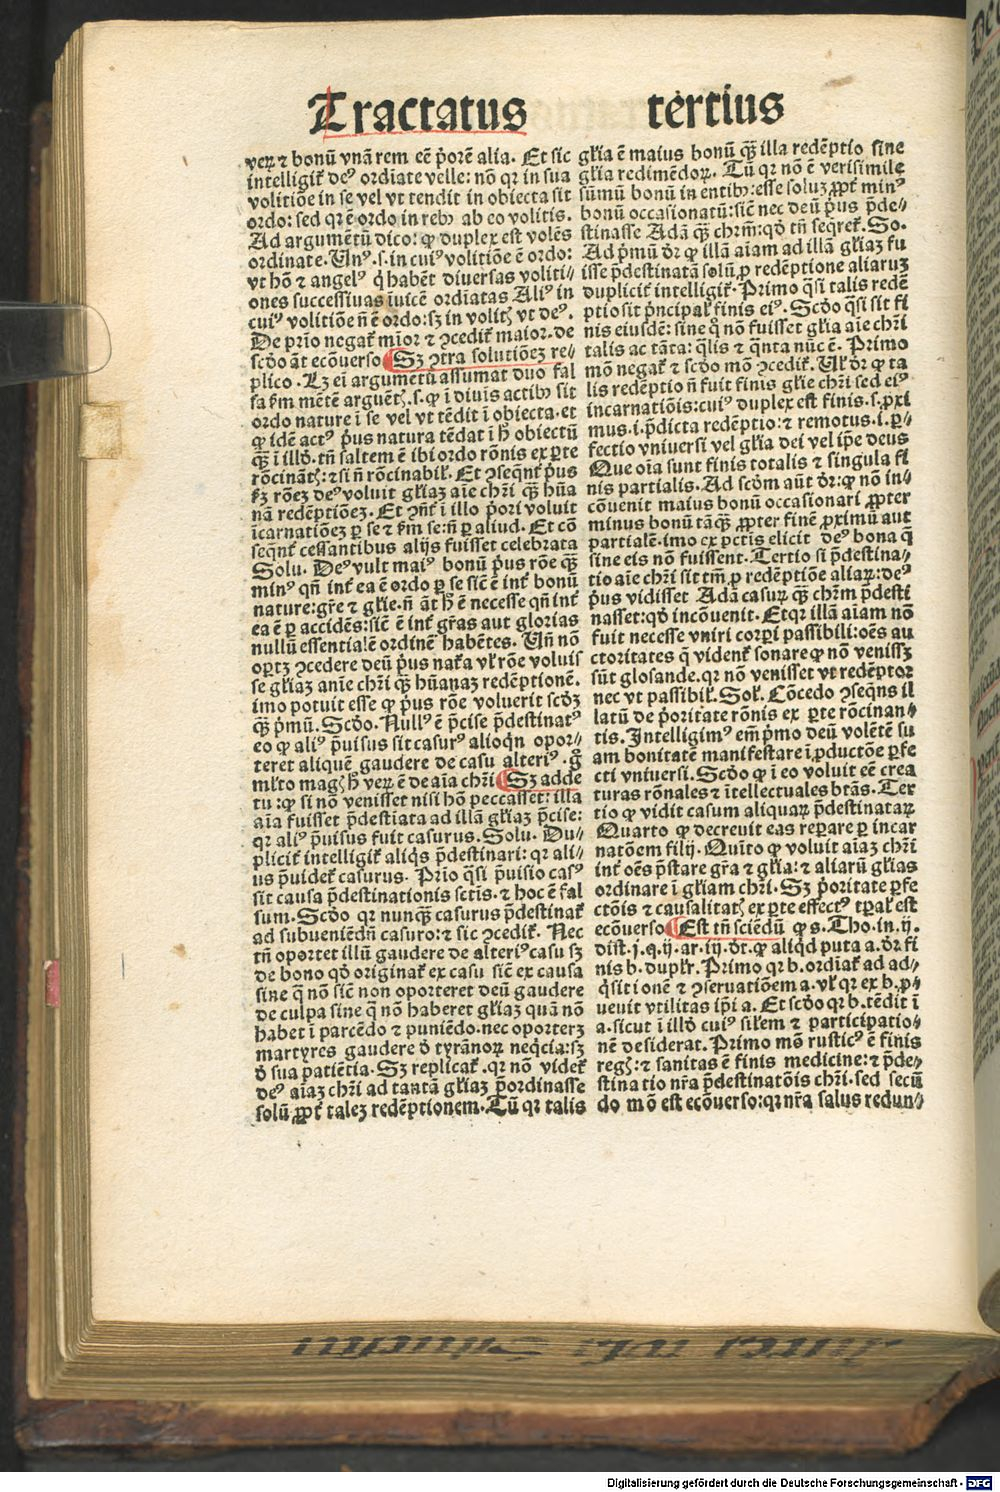 Tractatus tertius
veꝝ ⁊ bonū vnā rem eē p̄orē alia. Et sic
intelligit᷑ deꝰ ordīate velle: nō qꝛ in sua
volitiōe in se vel vt tendit in obiecta sit
ordo: sed qꝛ ē ordo in rebꝫ ab eo volitis.
Ad argumētū dico: ꝙ duplex est volēs
ordinate. Vnꝰ .s. in cuiꝰ volitiōe ē ordo:
vt hō ⁊ angelꝰ q̇ habēt diuersas voliti⸗
ones successiuas īuicē ordiatas Aliꝰ in
cuiꝰ volitiōe n̄ ē ordo: sꝫ in volitꝭ vt deꝰ.
De prīo negat᷑ mīor ⁊ ꝯcedit᷑ maior. de
scd̄o āt ecōuerso ¶ Sꝫ ꝯtra solutiōeꝫ re⸗
plico. Lꝫ eī argumētū assumat duo fal
sa ẜm mētē arguētꝭ .s. ꝙ ī diuīs actibꝫ sit
ordo nature ī se vel vt tēdit ī obiecta. et
ꝙ idē actꝰ p̄us natura tēdat ī ħ obiectū
qꝫ̄ ī illđ. tn̄ saltem ē ibi ordo rōnis ex ꝑte
rōcinātꝭ: ⁊ si n̄ rōcinabil᷑. Et ꝯseqn̄t᷑ p̄us
ẜꝫ rōeꝫ deꝰ voluit gl̄iaꝫ aīe chr̄i qꝫ̄ hūa
nā redēptiōeꝫ. Et ꝯn̄t᷑ ī illo p̄ori voluit
īcarnatiōeꝫ ꝑ se ⁊ ẜm se: n̄ ꝑ aliud. Et cō
seqn̄t᷑ cessantibus alijs fuisset celebrata
Solu. Deꝰ vult maiꝰ bonū p̄us rōe qꝫ̄
minꝰ qn̄ int᷑ ea ē ordo ꝑ se sic̄ ē int᷑ bonū
nature: gr̄e ⁊ gl̄ie. n̄ āt ħ ē necesse qn̄ int᷑
ea ē ꝑ accidēs: sic̄ ē int᷑ gr̄as aut glorias
nullū essentialē ordinē habētes. Vn̄ nō
oꝑtꝫ ꝯcedere deū p̄us nat᷑a vl᷑ rōe voluis
se gl̄iaꝫ anīe chr̄i qꝫ̄ hūanaꝫ redēptionē.
imo potuit esse ꝙ p̄us rōe voluerit scd̄ꝫ
qꝫ̄ p̄mū. Scd̄o. Nullꝰ ē p̄cise p̄destinatꝰ
eo ꝙ aliꝰ p̄uisus sit casurꝰ alioqn̄ opor⸗
teret aliquē gaudere de casu alteriꝰ. g̊
ml̄to magꝭ ħ veꝝ ē de aīa chr̄i ¶ Sꝫ adde
tu: ꝙ si nō venisset nisi hō peccasset: illa
aīa fuisset p̄destīata ad illā gl̄iaꝫ p̄cise:
qꝛ aliꝰ p̄uisus fuit casurus. Solu. Du⸗
plicit᷑ intelligit᷑ aliq̄s p̄destinari: qꝛ ali⸗
us p̄uidet᷑ casurus. Prīo qͣsi p̄uisio casꝰ
sit causa p̄destinationis sctīs. ⁊ hoc ē fal
sum. Scd̄o qꝛ nunqꝫ̄ casurus p̄destinat᷑
ad subueniēdū casuro: ⁊ sic ꝯcedit᷑. Nec
tn̄ oportet illū gaudere de alteriꝰ casu sꝫ
de bono qđ originat᷑ ex casu sic̄ ex causa
sine q̄ nō sic̄ non oporteret deū gaudere
de culpa sine q̄ nō haberet gl̄iaꝫ quā nō
habet ī parcēdo ⁊ puniēdo. nec oporterꝫ
martyres gaudere đ tyrānoꝝ neq̇cia: sꝫ
đ sua patiētia. Sꝫ replicat᷑. qꝛ nō videt᷑
deꝰ aīaꝫ chr̄i ad tantā gl̄iaꝫ p̄ordinasse
solū ꝓpt᷑ taleꝫ redēptionem. Tū qꝛ talis
gl̄ia ē maius bonū qꝫ̄ illa redēptio sine
gl̄ia redimēdoꝝ. Tū qꝛ nō ē verisimile
sūmū bonū in entibꝫ: esse soluꝫ ꝓpt᷑ minꝰ
bonū occasionatū: sic̄ nec deū p̄us p̄de⸗
stinasse Adā qꝫ̄ chrm̄: qđ tn̄ seqret᷑. So.
Ad p̄mū dr̄ ꝙ illā aīam ad illā gl̄iaꝫ fu
isse p̄destinatā solū ꝓ redēptione aliaruꝫ
duplicit᷑ intelligit᷑. Primo qͣsi talis redē
ptio sit p̄ncipal᷑ finis eiꝰ. Scd̄o qͣsi sit fi
nis eiusdē: sine q̊ nō fuisset gl̄ia aīe chr̄i
talis ac tāta: qͣlis ⁊ qͣnta nūc ē. Primo
mō negat᷑ ⁊ scd̄o mō ꝯcedit᷑. Vl᷑ dr̄ ꝙ ta
lis redēptio n̄ fuit finis gl̄ie chr̄i sed eiꝰ
incarnatiōis: cuiꝰ duplex est finis .s. ꝓxi
mus .i. p̄dicta redēptio: ⁊ remotus .i. ꝑ⸗
fectio vniuersi vel gl̄ia dei vel ip̄e deus
Que oīa sunt finis totalis ⁊ singula fi
nis partialis. Ad scd̄m aūt dr̄: ꝙ nō in⸗
cōuenit maius bonū occasionari ꝓpter
minus bonū tāqꝫ̄ ꝓpter finē ꝓximū aut
partialē. imo ex pctīs elicit deꝰ bona q̄
sine eis nō fuissent. Tertio si p̄destina⸗
tio aīe chr̄i sit tm̄ ꝓ redēptiōe aliaꝝ: deꝰ
p̄us vidisset Adā casuꝝ qꝫ̄ chr̄m p̄desti
nasset: qđ incōuenit. Et qꝛ illā aīam nō
fuit necesse vniri corp̄i passibili: oēs au
ctoritates q̄ vident᷑ sonare ꝙ nō venissꝫ
sūt glosande. qꝛ nō venisset vt redēptor
nec vt passibil᷑. Sol᷑. Cōcedo ꝯseqn̄s il
latū de p̄oritate rōnis ex ꝑte rōcinan⸗
tis. Intelligimꝰ em̄ p̄mo deū volētē su
am bonitatē manifestare ī ꝓductōe ꝑfe
cti vniuersi. Scd̄o ꝙ ī eo voluit eē crea
turas rōnales ⁊ ītellectuales btās. Ter
tio ꝙ vidit casum aliquaꝝ p̄destinataꝝ
Quarto ꝙ decreuit eas reꝑare ꝑ incar
natōem filij. Quīto ꝙ voluit aīaꝫ chr̄i
int᷑ oēs p̄stare gr̄a ⁊ gl̄ia: ⁊ aliarū gl̄ias
ordinare ī gl̄iam chr̄i. Sꝫ p̄oritate ꝑfe
ctōis ⁊ causalitatꝭ ex ꝑte effectꝰ tꝑal᷑ est
ecōuerso ¶ Est tn̄ sciēdū ꝙ s. Tho. in .ij.
dist. j. q. ij. ar. iij. đt. ꝙ aliqđ puta a. dr̄ fi
nis b. duplr̄. Primo qꝛ b. ordīat᷑ ad ad⸗
q̇sitionē ⁊ ꝯseruatiōem a. vl᷑ qꝛ ex b. ꝓ⸗
ueuit vtilitas ip̄i a. Et scd̄o qꝛ b. tēdit ī
a. sicut ī illđ cuiꝰ sil᷑em ⁊ participatio⸗
nē desiderat. Primo mō rusticꝰ ē finis
regꝭ: ⁊ sanitas ē finis medicine: ⁊ p̄de⸗
stinatio nr̄a p̄destinatōis chr̄i. sed secū
do mō est ecōuerso: qꝛ nr̄a salus redun⸗
Digitalisierung gefördert durch die Deutsche Forschungsgemeinschaft - DFG